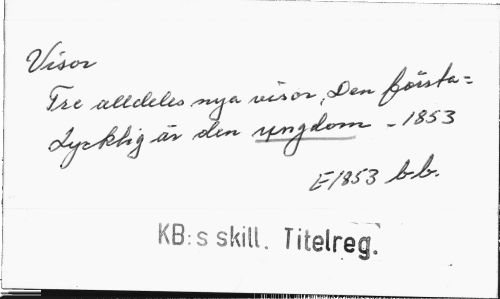 Visor
Tre alldeles nya visor, Den första=
Lycklig är den ungdom - 1853
E1853 bb.
KB:s skill. Titelreg.